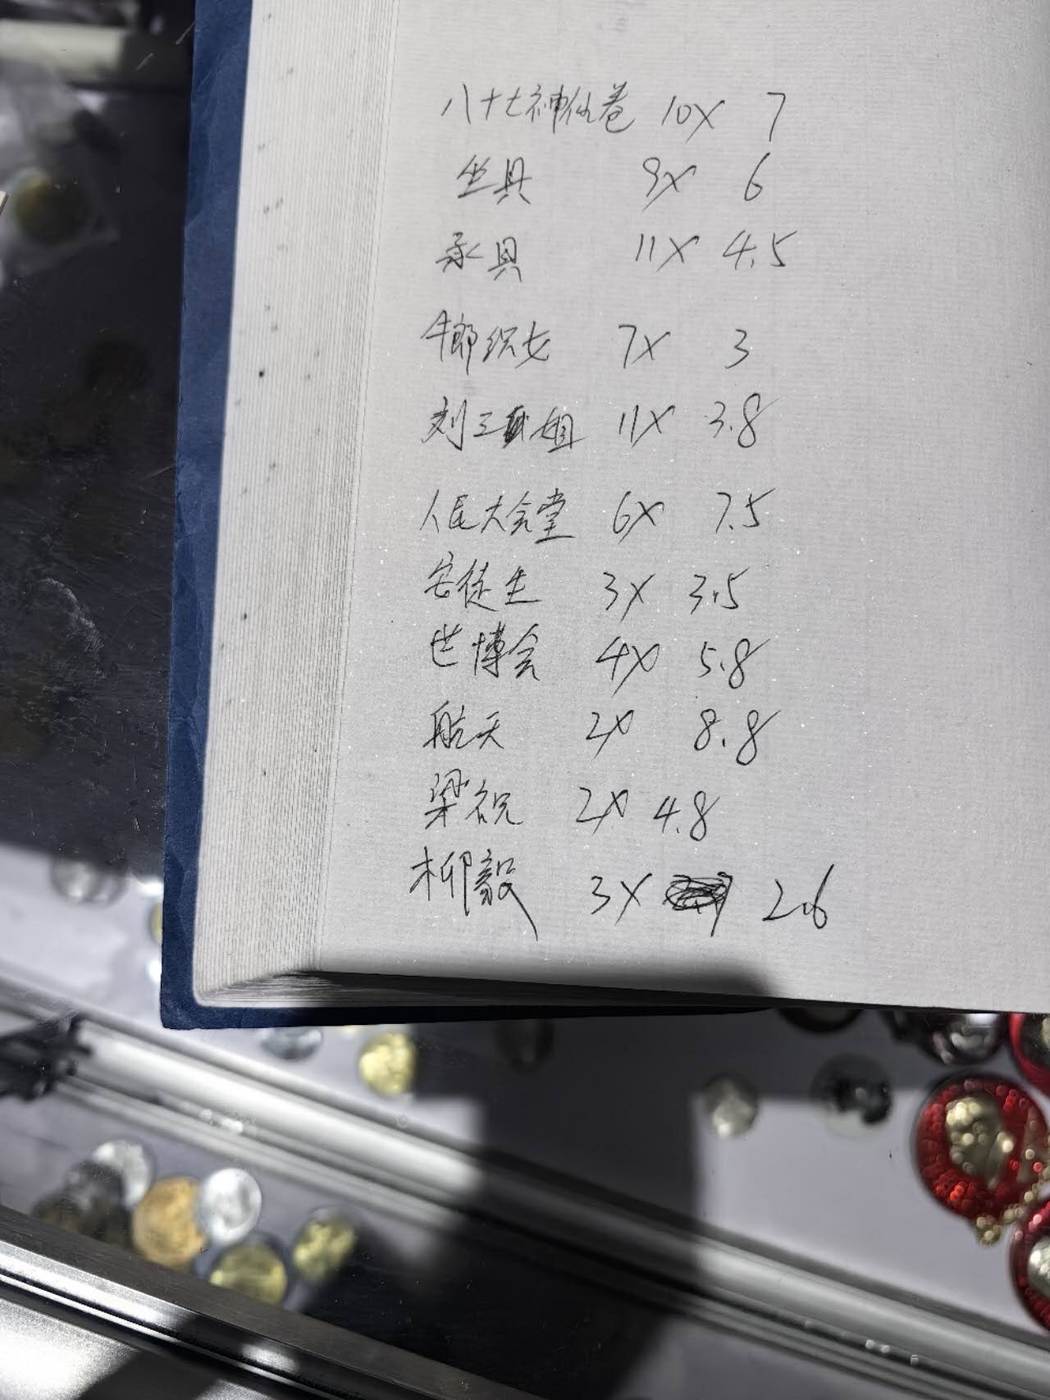 八十七神仙卷 10X 7
坐具 9X 6
承具 11X 4.5
牛郎织女 7X 3
刘三姐 11X 3.8
人民大会堂 6X 7.5
安徒生 3X 3.5
世博会 4X 5.8
航天 2X 8.8
梁祝 2X 4.8
柳毅 3X 2.6